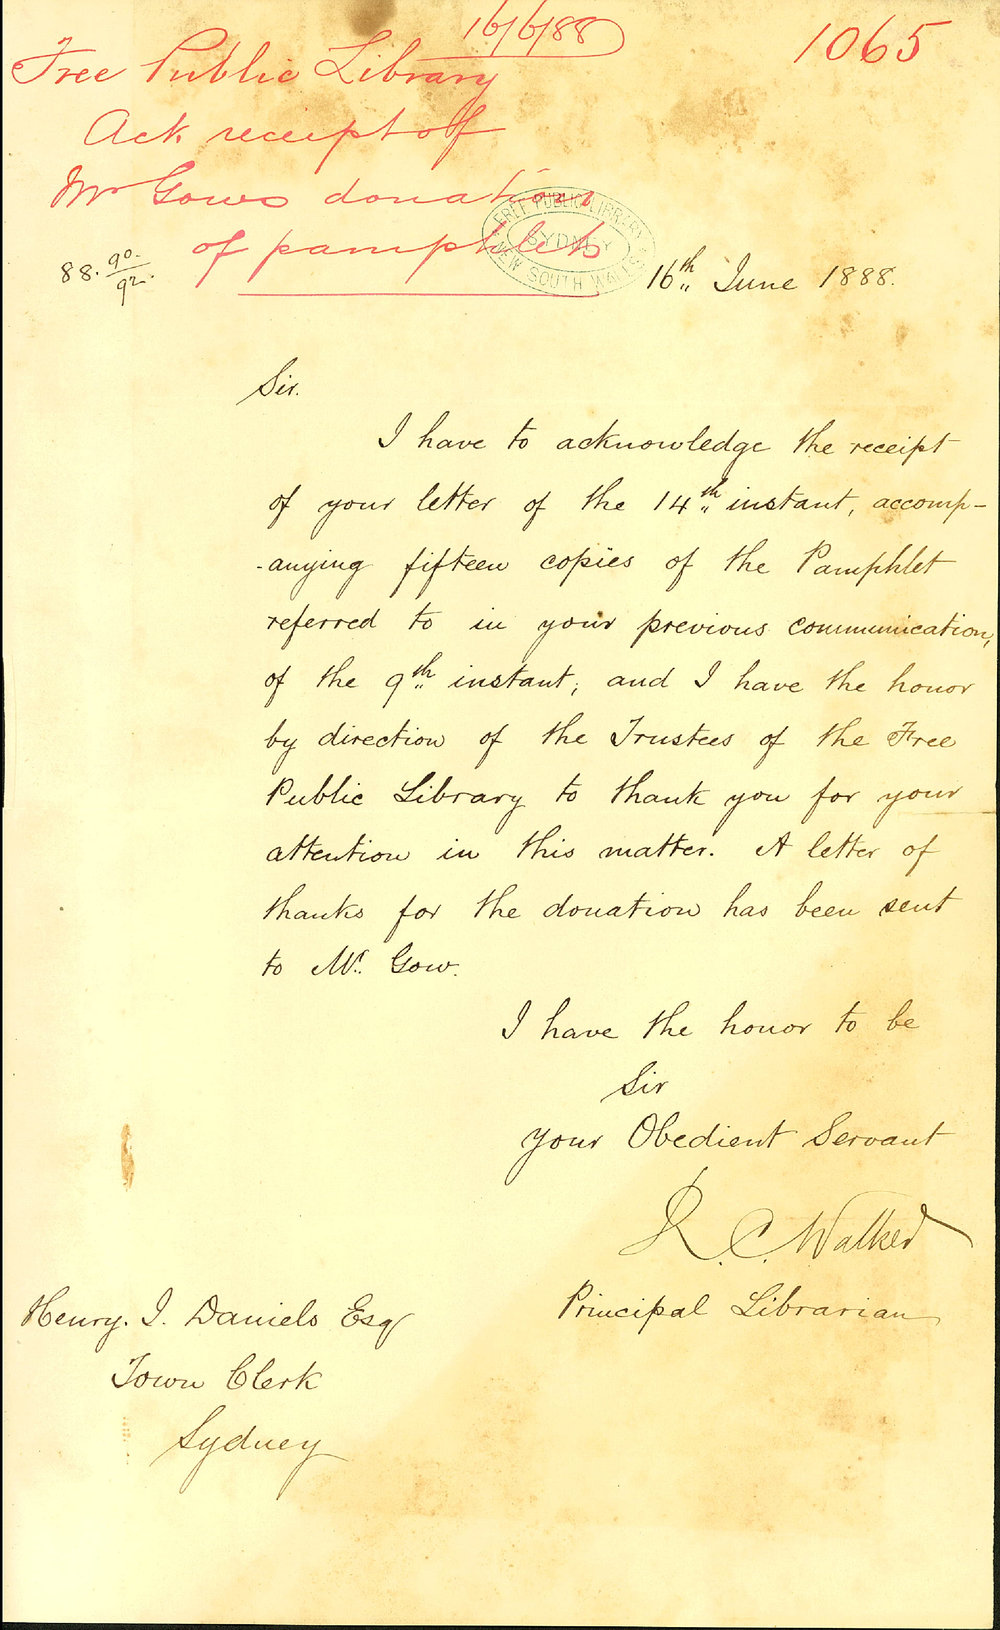 16/6/88
1065
Free Public Library
Ack receipt of
Mr Gows donation
of pamphlets
FREE PUBLIC LIBRARY
SYDNEY
NEW SOUTH WALES
88. 90/92.
16th June 1888.
Sir.
I have to acknowledge the receipt
of your letter of the 14th instant, accomp-
-anying fifteen copies of the Pamphlet
referred to in your previous communication,
of the 9th instant; and I have the honor
by direction of the Trustees of the Free
Public Library to thank you for your
attention in this matter. A letter of
thanks for the donation has been sent
to Mr. Gow.
I have the honor to be
Sir
Your Obedient Servant
R. C. Walker
Principal Librarian
Henry. J. Daniels Esq
Town Clerk
Sydney